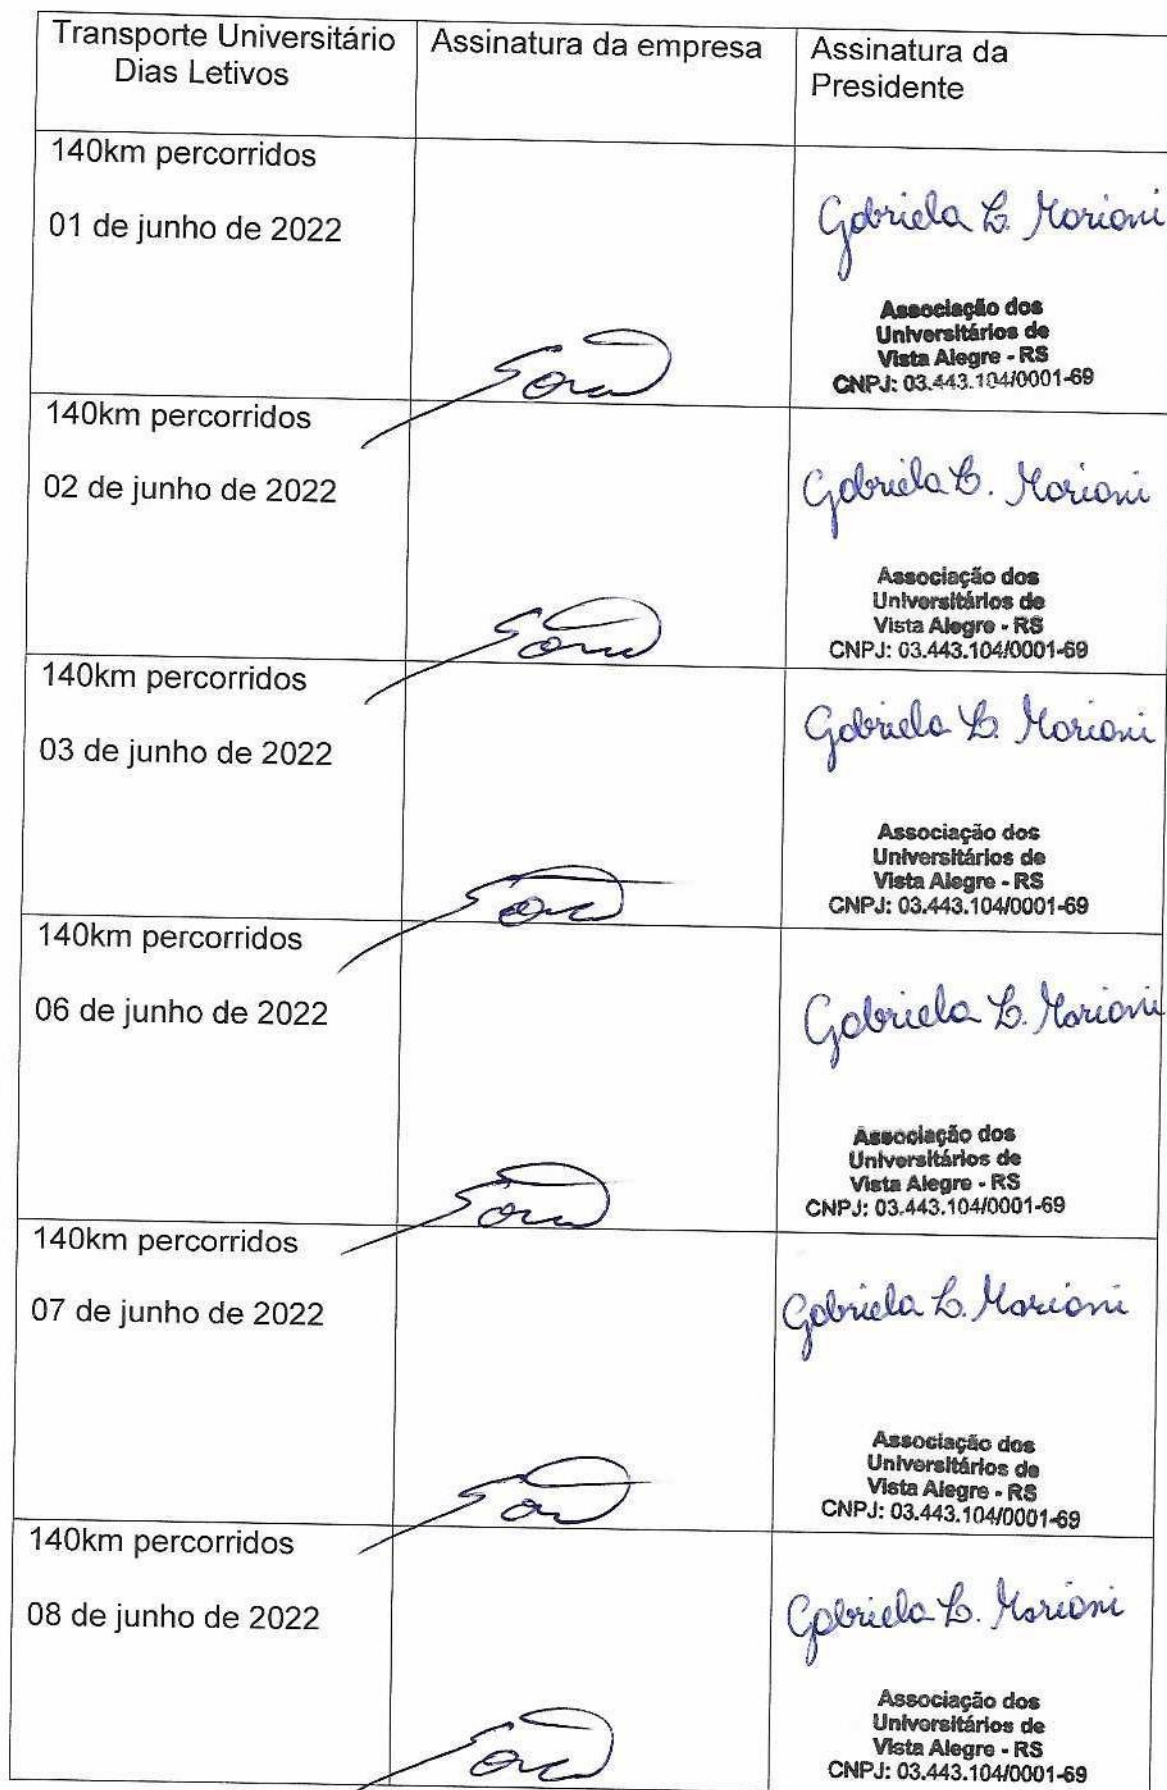 Transporte Universitário
Dias Letivos
Assinatura da empresa
Assinatura da
Presidente
140km percorridos
01 de junho de 2022
Gabriela L. Marioni
Associação dos
Universitários de
Vista Alegre - RS
CNPJ: 03.443.104/0001-69
140km percorridos
02 de junho de 2022
Gabriela L. Marioni
Associação dos
Universitários de
Vista Alegre - RS
CNPJ: 03.443.104/0001-69
140km percorridos
03 de junho de 2022
Gabriela L. Marioni
Associação dos
Universitários de
Vista Alegre - RS
CNPJ: 03.443.104/0001-69
140km percorridos
06 de junho de 2022
Gabriela L. Marioni
Associação dos
Universitários de
Vista Alegre - RS
CNPJ: 03.443.104/0001-69
140km percorridos
07 de junho de 2022
Gabriela L. Marioni
Associação dos
Universitários de
Vista Alegre - RS
CNPJ: 03.443.104/0001-69
140km percorridos
08 de junho de 2022
Gabriela L. Marioni
Associação dos
Universitários de
Vista Alegre - RS
CNPJ: 03.443.104/0001-69